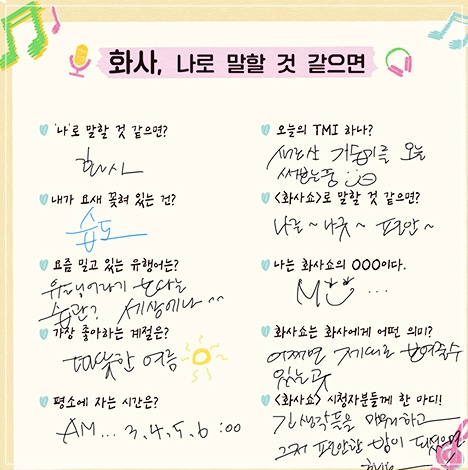 화사, 나로 말할 것 같으면
'나'로 말할 것 같으면?
화사
내가 요새 꽂혀 있는 건?
습도
요즘 밀고 있는 유행어는?
유행어라기 보다는
습관? 세상에나 ^^
가장 좋아하는 계절은?
따뜻한 여름
평소에 자는 시간은?
AM... 3, 4, 5, 6 :00
오늘의 TMI 하나?
새로산 거 오늘
써보는중
<화사쇼>로 말할 것 같으면?
나른~ 나긋~ 편안~
나는 화사쇼의 OOO이다.
MC ...
화사쇼는 화사에게 어떤 의미?
어쩌면 제대로 보여줄수
있는곳
<화사쇼> 시청자분들께 한 마디!
긴 생각들을 하고
그저 편안한 밤이 되셨으면